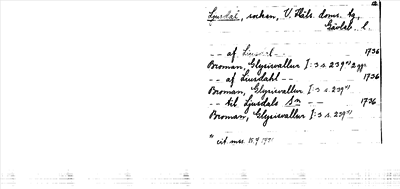 Ljusdal, socken, V. Häls. doms. tg,
Gävleb. l.
-- af Liusdal -- 1736
Broman, Glysisvallur I:3 s. 239 *) 2 ggr
-- af Liusdahl -- 1736
Broman, Glysisvallur I:3 s. 239 *)
-- til Ljusdals Sn -- 1736
Broman, Glysisvallur I:3 s. 239 *)
*) cit. mss.